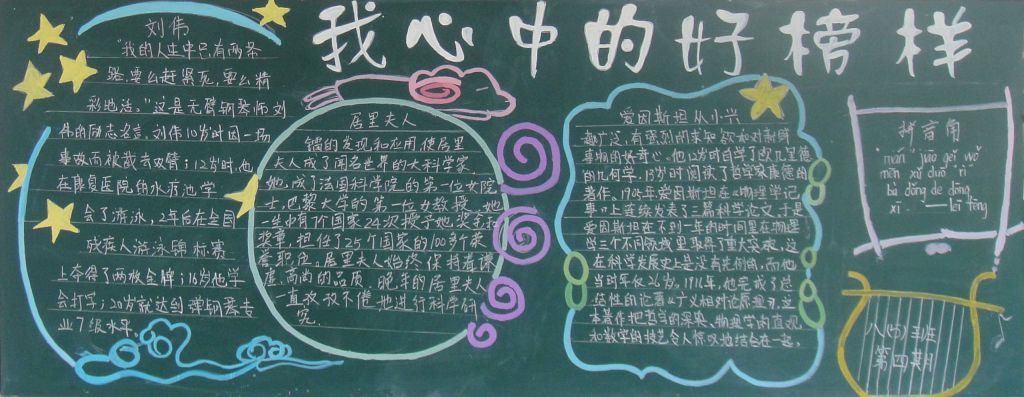 我心中的好榜样
刘伟
"我的人生中只有两条
路,要么赶紧死,要么精
彩地活。"这是无臂钢琴师刘
伟的励志名言。刘伟10岁时因一场
事故而被截去双臂；12岁时,他
在康复医院的水疗池学
会了游泳,2年后在全国
残疾人游泳锦标赛
上夺得了两枚金牌；16岁他学
会打字；20岁就达到弹钢琴专
业7级水平。
居里夫人
镭的发现和应用,使居里
夫人成了闻名世界的大科学家。
她,成了法国科学院的第一位女院
士,巴黎大学的第一位女教授。她
一生中有7个国家24次授予她奖金和
奖章,担任了25个国家的100多个荣
誉职位。居里夫人始终保持着谦
虚、高尚的品质。晚年的居里夫人
一直孜孜不倦地进行科学研
究。
爱因斯坦从小兴
趣广泛,有强烈的求知欲和对新鲜
事物的好奇心。他12岁时自学了欧几里德
的几何学。13岁时阅读了哲学家康德的
著作。1905年爱因斯坦在《物理学记
事》上连续发表了三篇科学论文,于是
爱因斯坦在不到一年的时间里在物理
学三个不同领域里取得了重大突破,这
在科学发展史上是没有先例的,而他
当时年仅26岁。1916年,他完成了总
结性的论著《广义相对论原理》,这
本著作把哲学的深奥、物理学的直观
和数学的技艺令人惊叹地结合在一起。
拼音角
"mán jiāo gěi wǒ
mēn xǔ duō rì
bù dōng de dōng
xī. ——lěi fēng
八(5)班
第四期